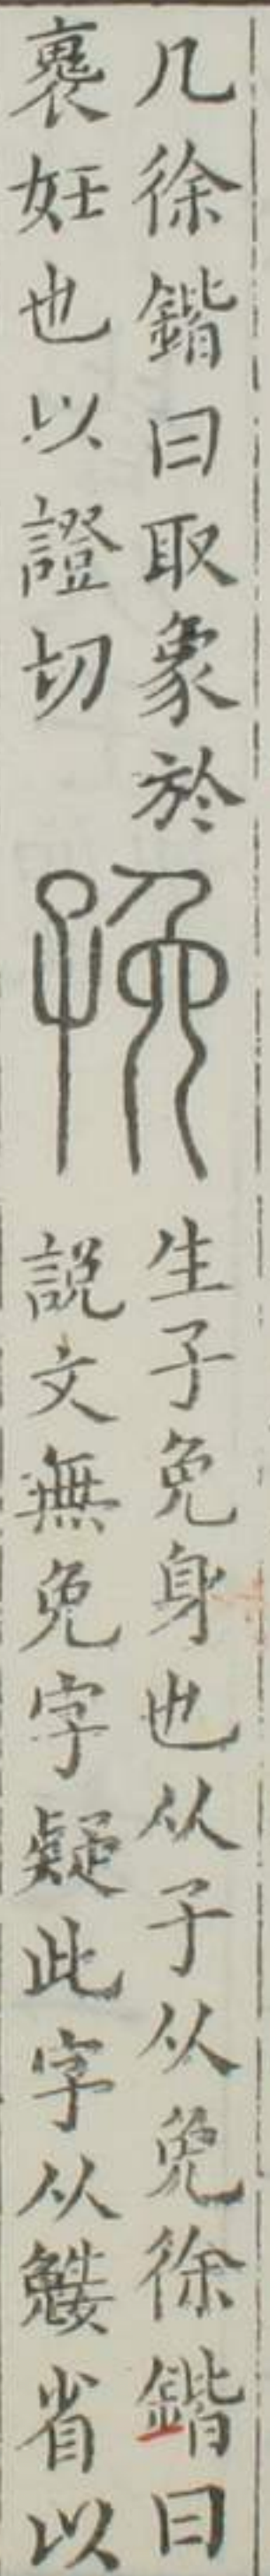 几徐鍇曰取象於
褱妊也以證切
㝃
生子免身也从子从免徐鍇曰
說文無免字疑此字从㝃省以